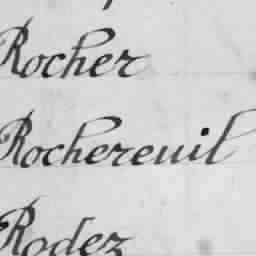 Rocher
Rochereuil
Rodez